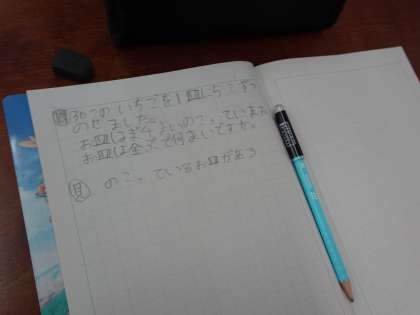 問 30このいちごを1皿に5こずつ
のせました。
お皿はまだ4まいのこっています。
お皿は全ぶで何まいですか。
見 のこっているお皿がある